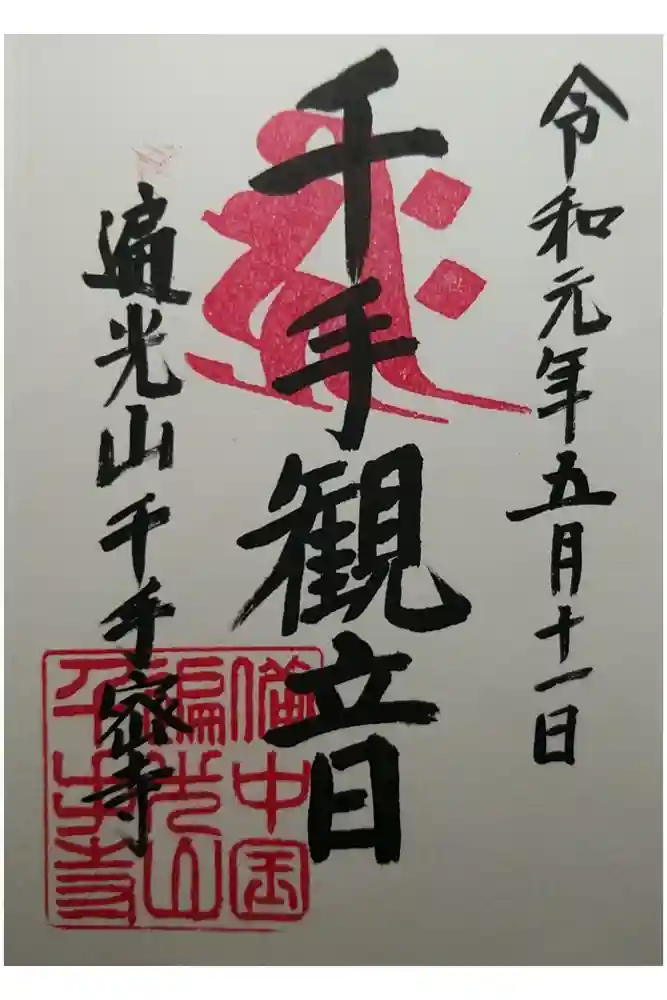 令和元年五月十一日
千手観音
遍光山千手密寺
備中国
遍光山
千手寺